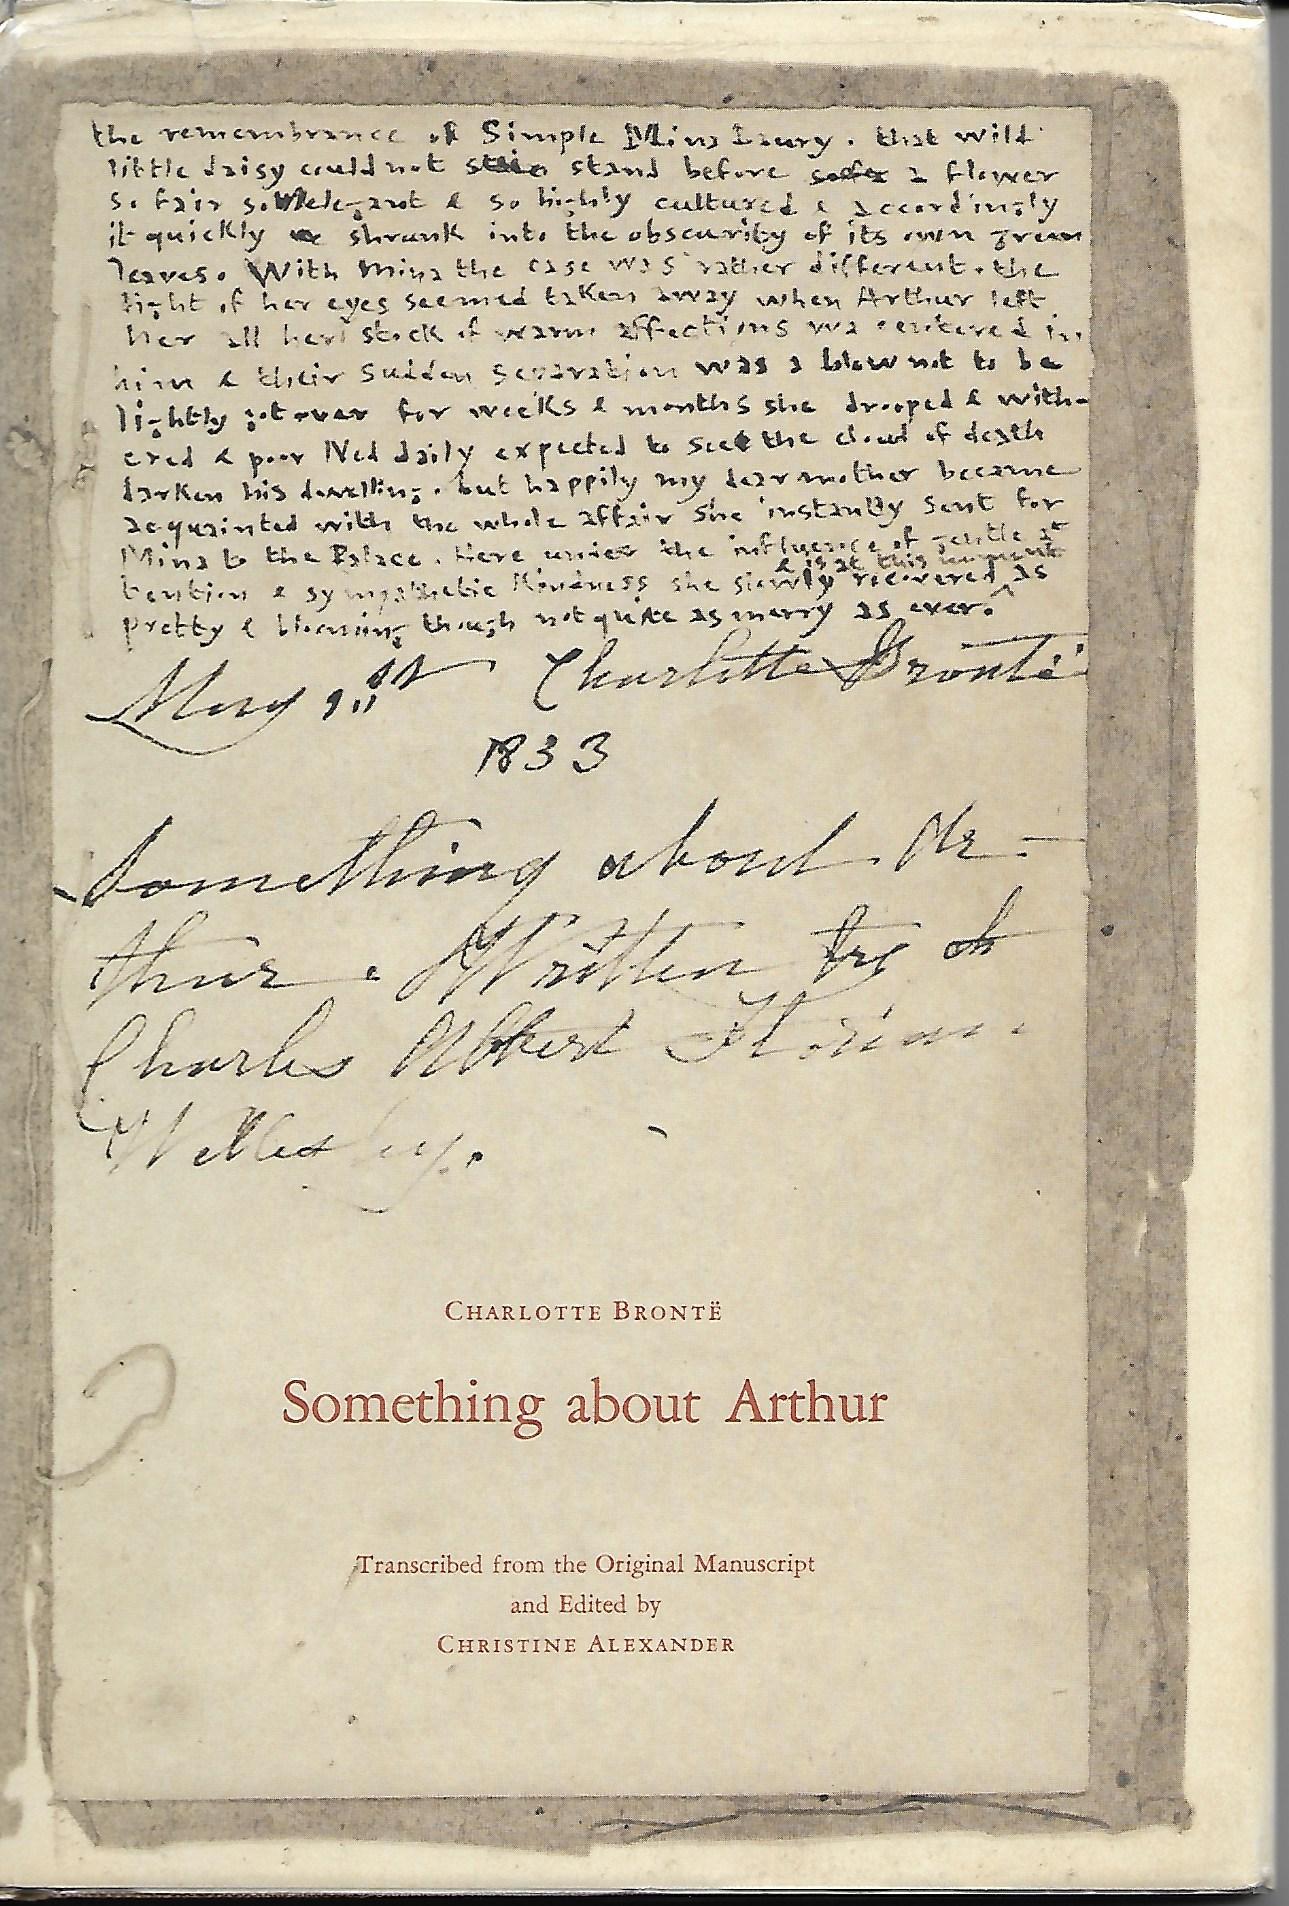 the remembrance of Simple Mina Laury. that wild
little daisy could not stand before a flower
so fair so elegant & so highly cultured & accordingly
it quickly shrunk into the obscurity of its own green
leaves. With Mina the case was rather different. the
light of her eyes seemed taken away when Arthur left
her all her stock of warm affections wa centered in
him & their sudden separation was a blow not to be
lightly got over for weeks & months she drooped & with-
ered & poor Ned daily expected to see the cloud of death
darken his dwelling. but happily my dear mother became
acquainted with the whole affair she instantly sent for
Mina to the Palace. Here under the influence of gentle at
& is at this moment
tention & sympathetic kindness she slowly recovered ^ as
pretty & blooming though not quite as merry as ever.
May 1st Charlotte Brontë
1833
Something about Ar-
thur. Written by
Charles Albert Florian
Wellesley.
CHARLOTTE BRONTË
Something about Arthur
Transcribed from the Original Manuscript
and Edited by
CHRISTINE ALEXANDER